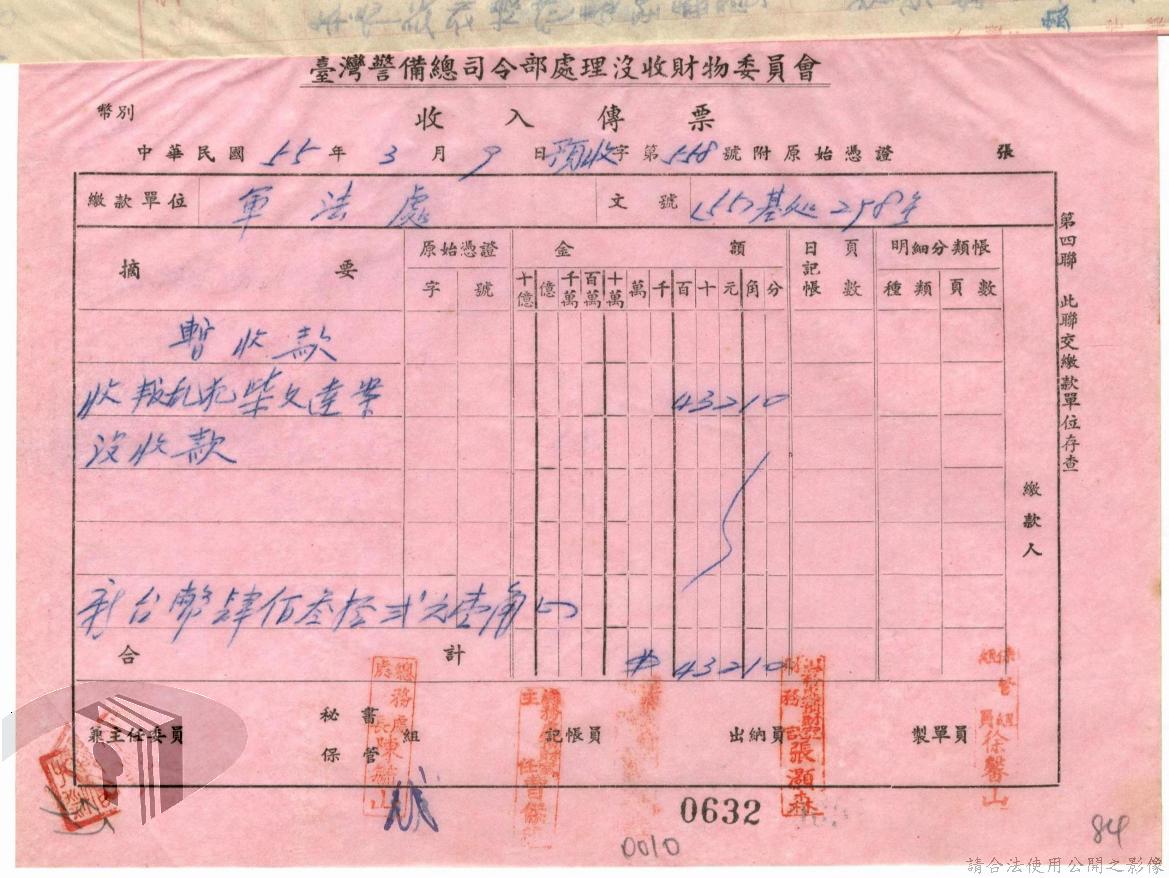 臺灣警備總司令部處理沒收財物委員會
幣別
收入傳票
中華民國 55 年 3 月 9 日 預收 字第 558 號附原始憑證 張
繳款單位 軍法處 文號 (55)基处2585
摘要 原始憑證 金額 日記帳 頁數 明細分類帳
字 號 十億 億 千萬 百萬 十萬 萬 千 百 十 元 角 分 種類 頁數
暫收款
收叛乱犯柴文達案 43210
沒收款
新台幣肆佰叁拾弍元壹角
合計 # 43210
兼主任委員 秘書 保管 組 記帳員 出納員 製單員
繳款人
第四聯 此聯交繳款單位存查
總務處
財務 張灝森
保管組組員徐馨山
0632
0010
84
請合法使用公開之影像